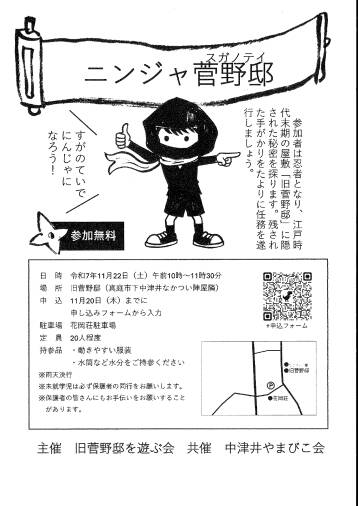 スガノテイ
ニンジャ菅野邸
参加者は忍者となり、江戸時
代末期の屋敷「旧菅野邸」に隠
された秘密を探ります。残され
た手がかりをたよりに任務を遂
行しましょう。
すがのていで
にんじゃに
なろう！
参加無料
日　時　令和7年11月22日（土）午前10時～11時30分
場　所　旧菅野邸（真庭市下中津井なかつい陣屋隣）
申　込　11月20日（木）までに
申し込みフォームから入力
駐車場　花岡荘駐車場
定　員　20人程度
持参品　・動きやすい服装
・水筒など水分をご持参ください
※雨天決行
※未就学児は必ず保護者の同行をお願いします。
※保護者の皆さんにもお手伝いをお願いすること
があります。
↑申込フォーム
●旧菅野邸
Ⓟ
●花岡荘
主催　旧菅野邸を遊ぶ会　共催　中津井やまびこ会